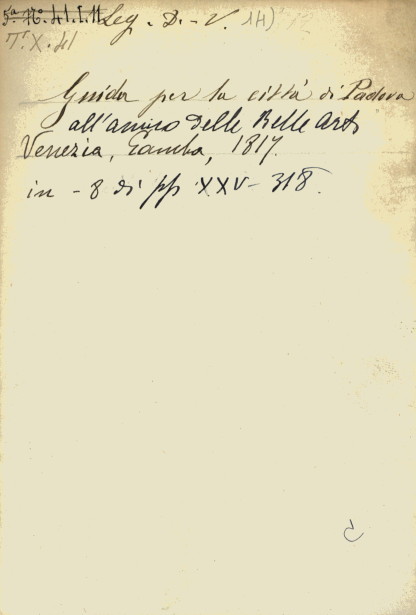 Leg. D. - V. 14)
T. X. del
Guida per la città di Padova
all'amico delle Belle Arti
Venezia, Gamba, 1817.
in - 8 di pp XXV - 318.